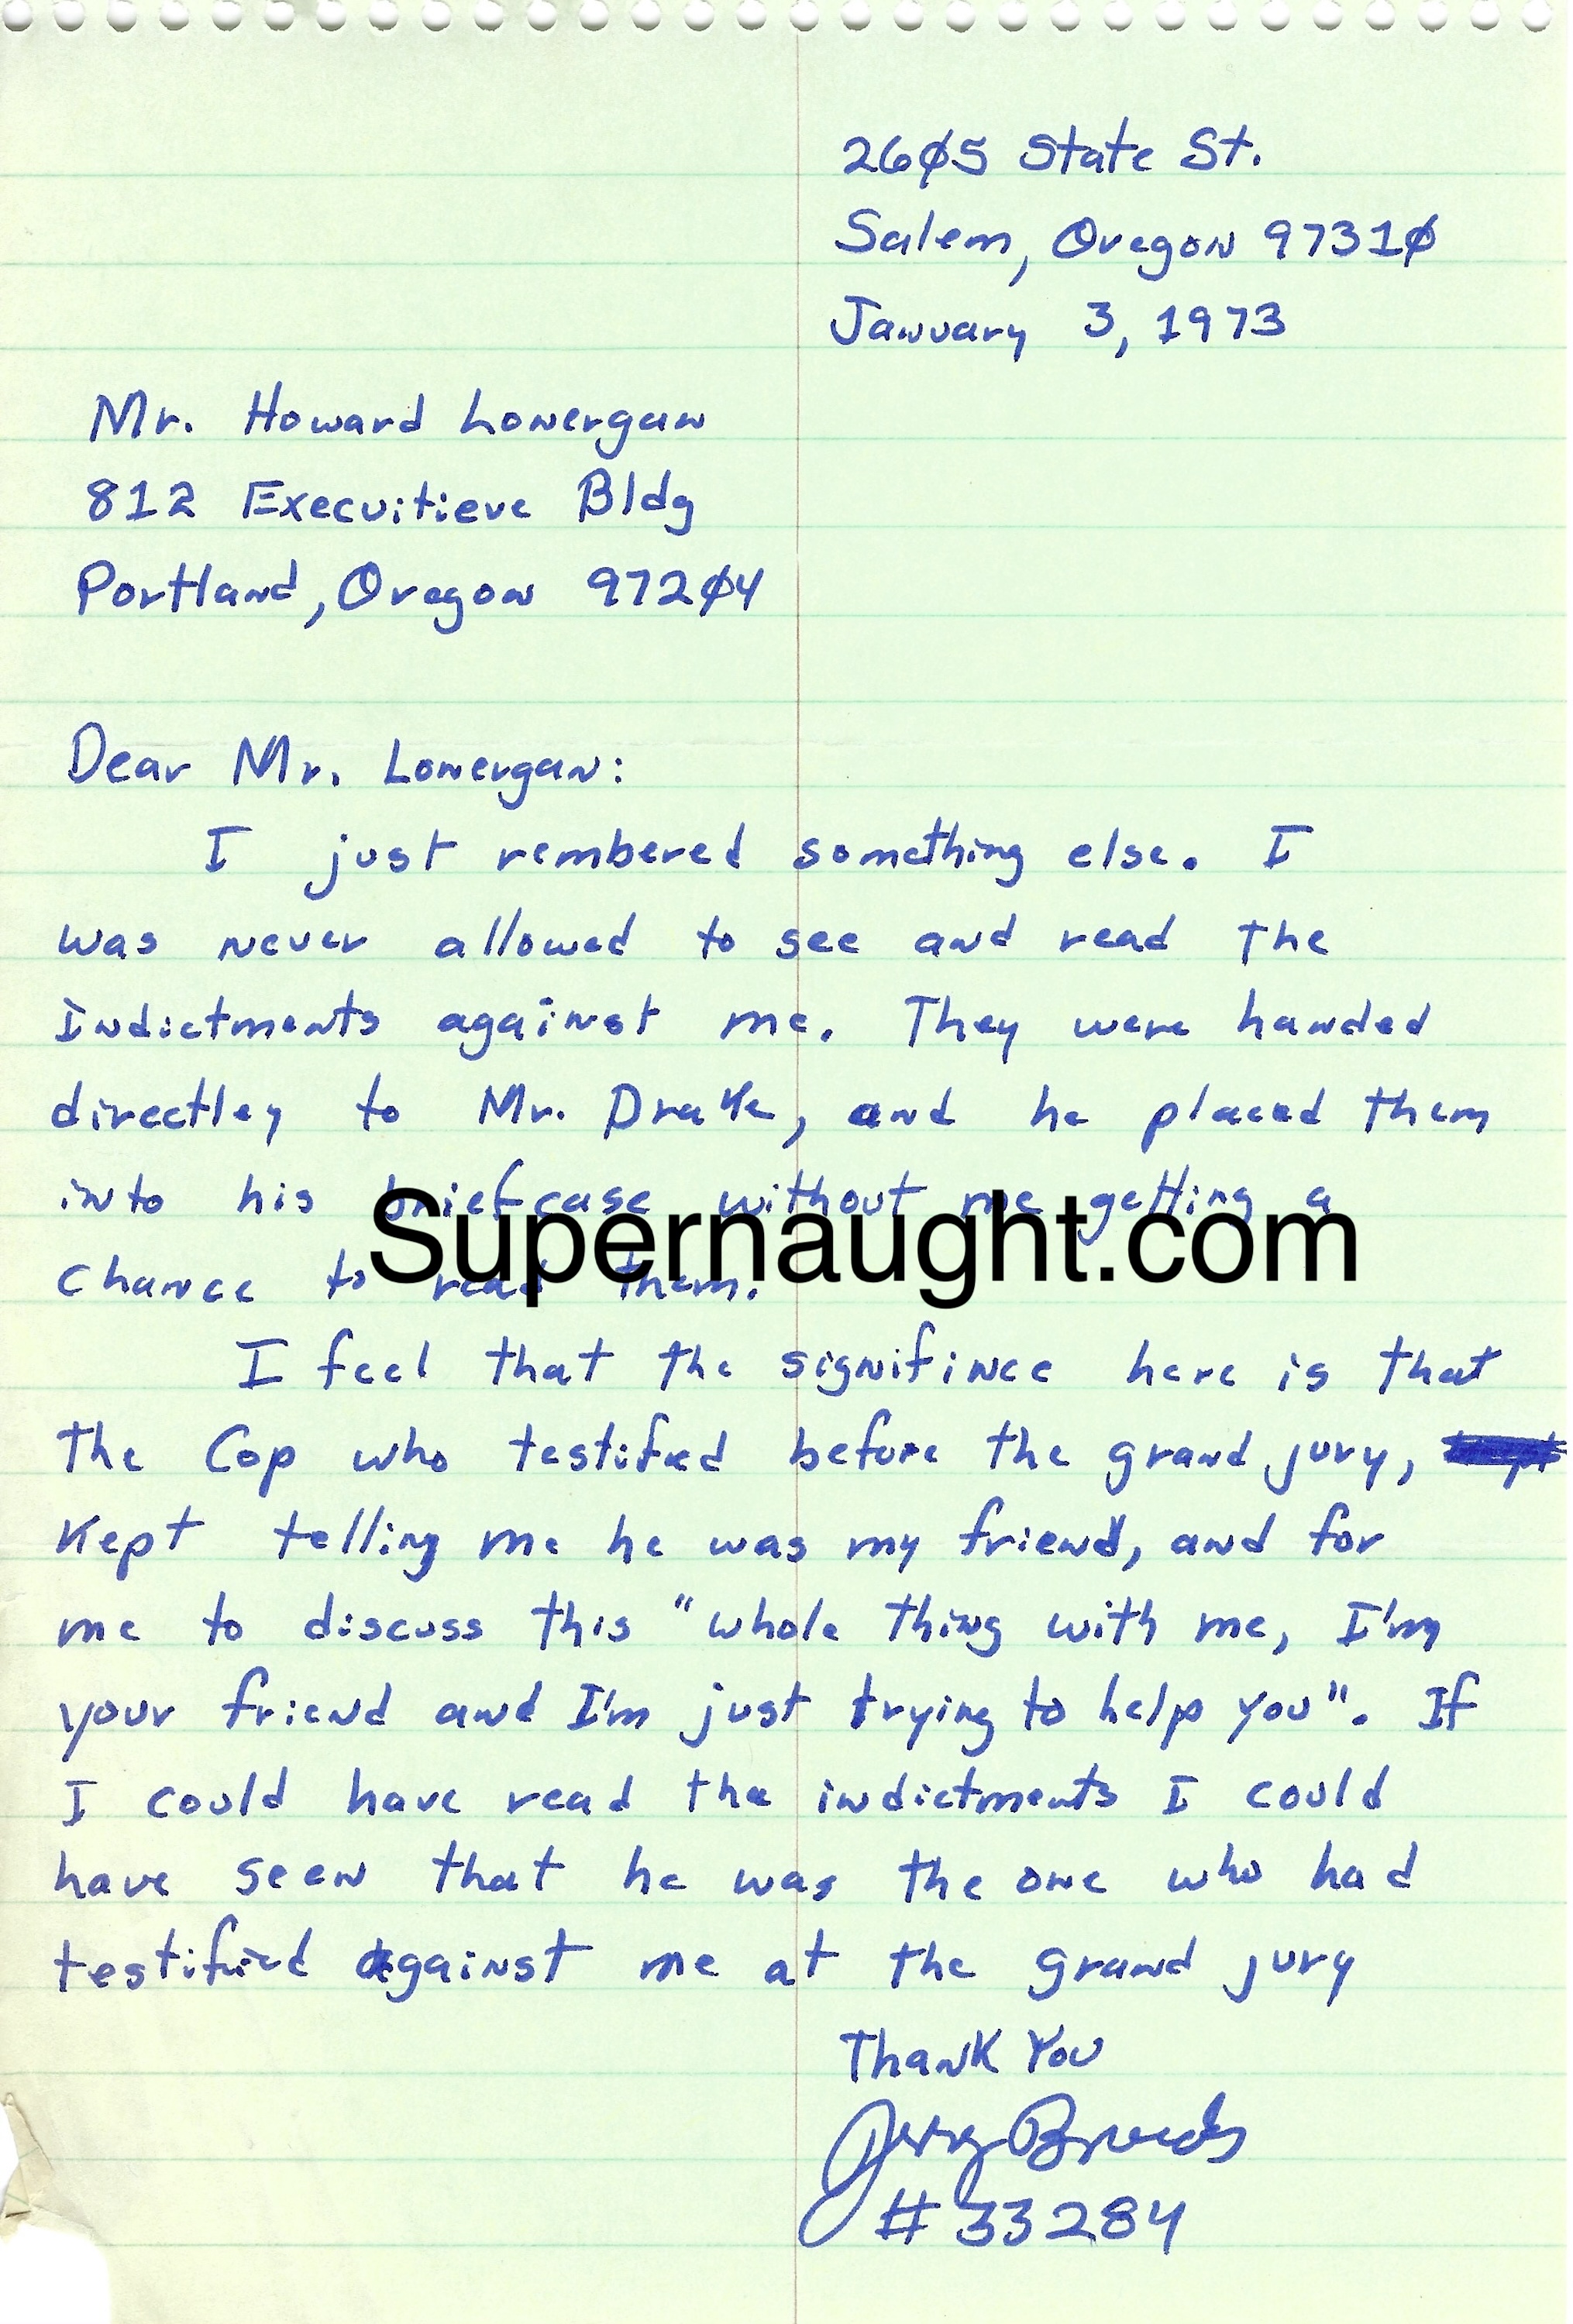 2605 State St.
Salem, Oregon 97310
January 3, 1973
Mr. Howard Lonergan
812 Execuitieve Bldg
Portland, Oregon 97204
Dear Mr. Lonergan:
I just rembered something else. I
was never allowed to see and read the
indictments against me. They were handed
directley to Mr. Drake, and he placed them
into his briefcase without me getting a
chance to read them.
Supernaught.com
I feel that the signifince here is that
the Cop who testified before the grand jury,
kept telling me he was my friend, and for
me to discuss this "whole thing with me, I'm
your friend and I'm just trying to help you". If
I could have read the indictments I could
have seen that he was the one who had
testified against me at the grand jury
Thank You
Jerry Brudos
# 33284